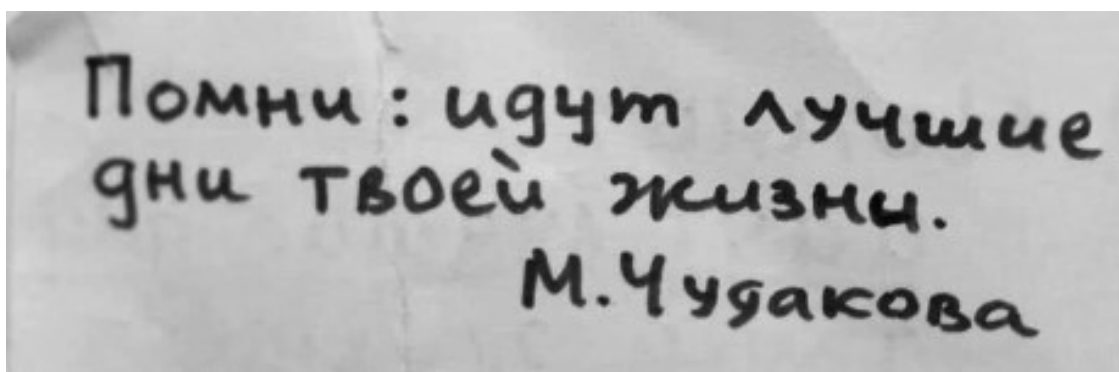 Помни: идут лучшие
дни твоей жизни.
М. Чудакова